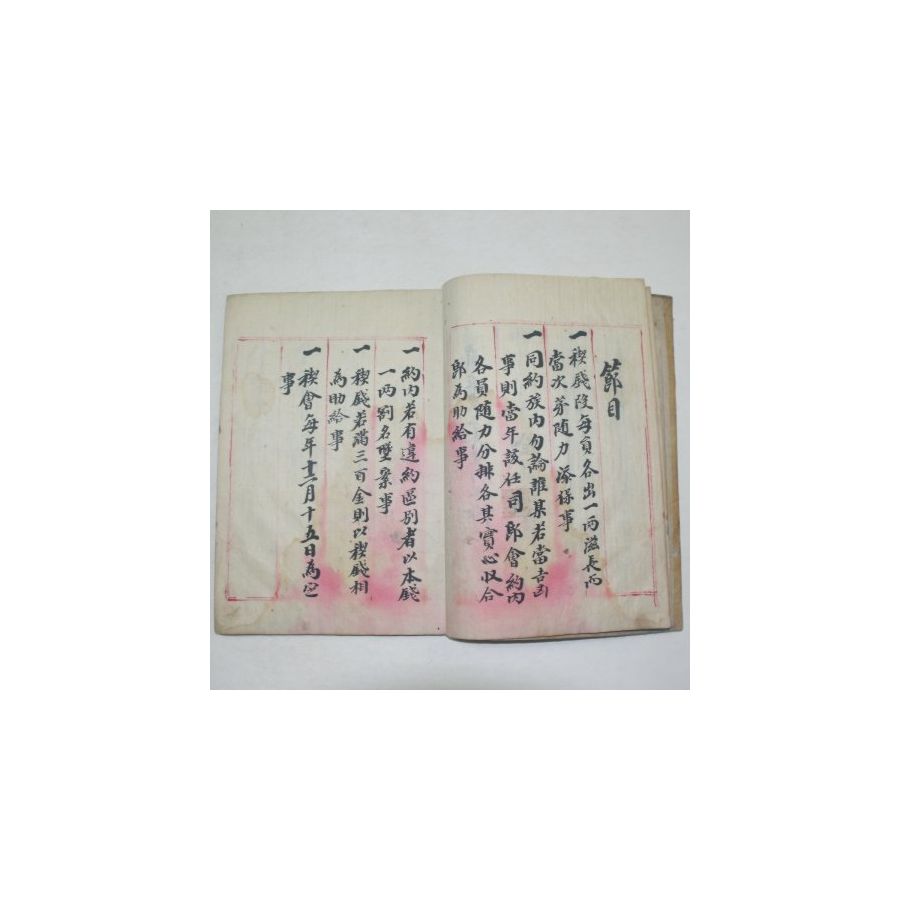 節目
一稧錢段每員各出一兩滋長而
當次第隨力添樣事
一同約族內勿論誰某若當吉凶
事則當年該任司郎會約內
各員隨力分排各其實心收合
郎為助給事
一約內若有違約區別者以本錢
一兩割名墨案事
一稧錢若滿三百金則以稧錢相
為助給事
一稧會每年十二月十五日為定
事